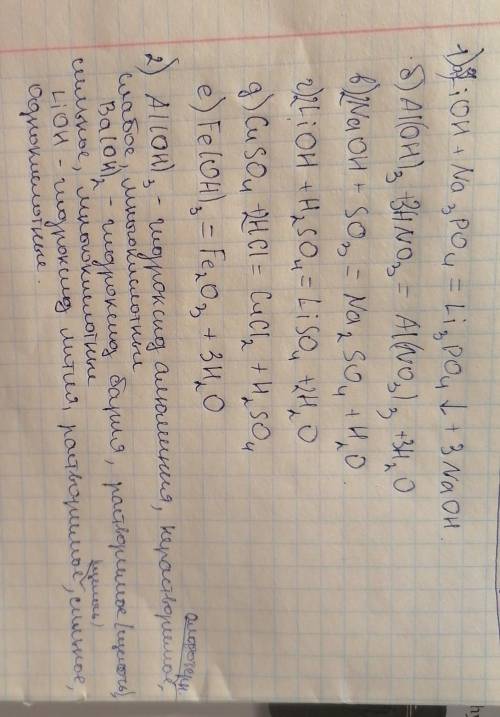 1) а) 3LiOH + Na₃PO₄ = Li₃PO₄↓ + 3NaOH.
б) Al(OH)₃ + 3HNO₃ = Al(NO₃)₃ + 3H₂O
в) 2NaOH + SO₃ = Na₂SO₄ + H₂O
г) 2LiOH + H₂SO₄ = LiSO₄ + 2H₂O
д) CuSO₄ + 2HCl = CuCl₂ + H₂SO₄
е) Fe(OH)₃ = Fe₂O₃ + 3H₂O
амфотерн
2) Al(OH)₃ - гидроксид алюминия, нерастворимое,
слабое, многокислотные
Ba(OH)₂ - гидроксид бария, растворимое (щелочь)
сильное, многокислотные
(щелочь)
LiOH - гидроксид лития, растворимое, сильное,
Однокислотные.